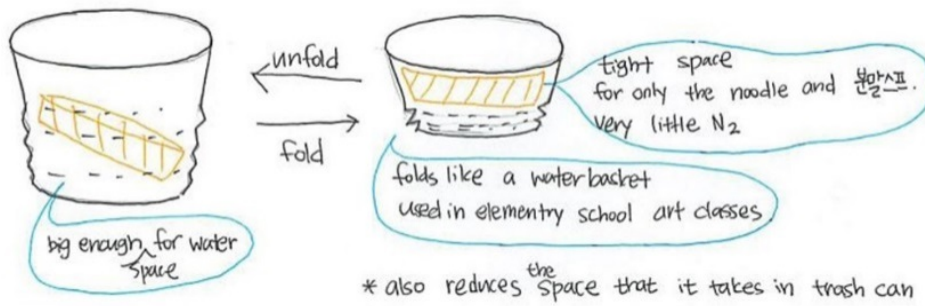 unfold
fold
tight space
for only the noodle and 분말스프.
very little N₂
folds like a water basket
used in elementry school art classes
big enough space for water
* also reduces the space that it takes in trash can